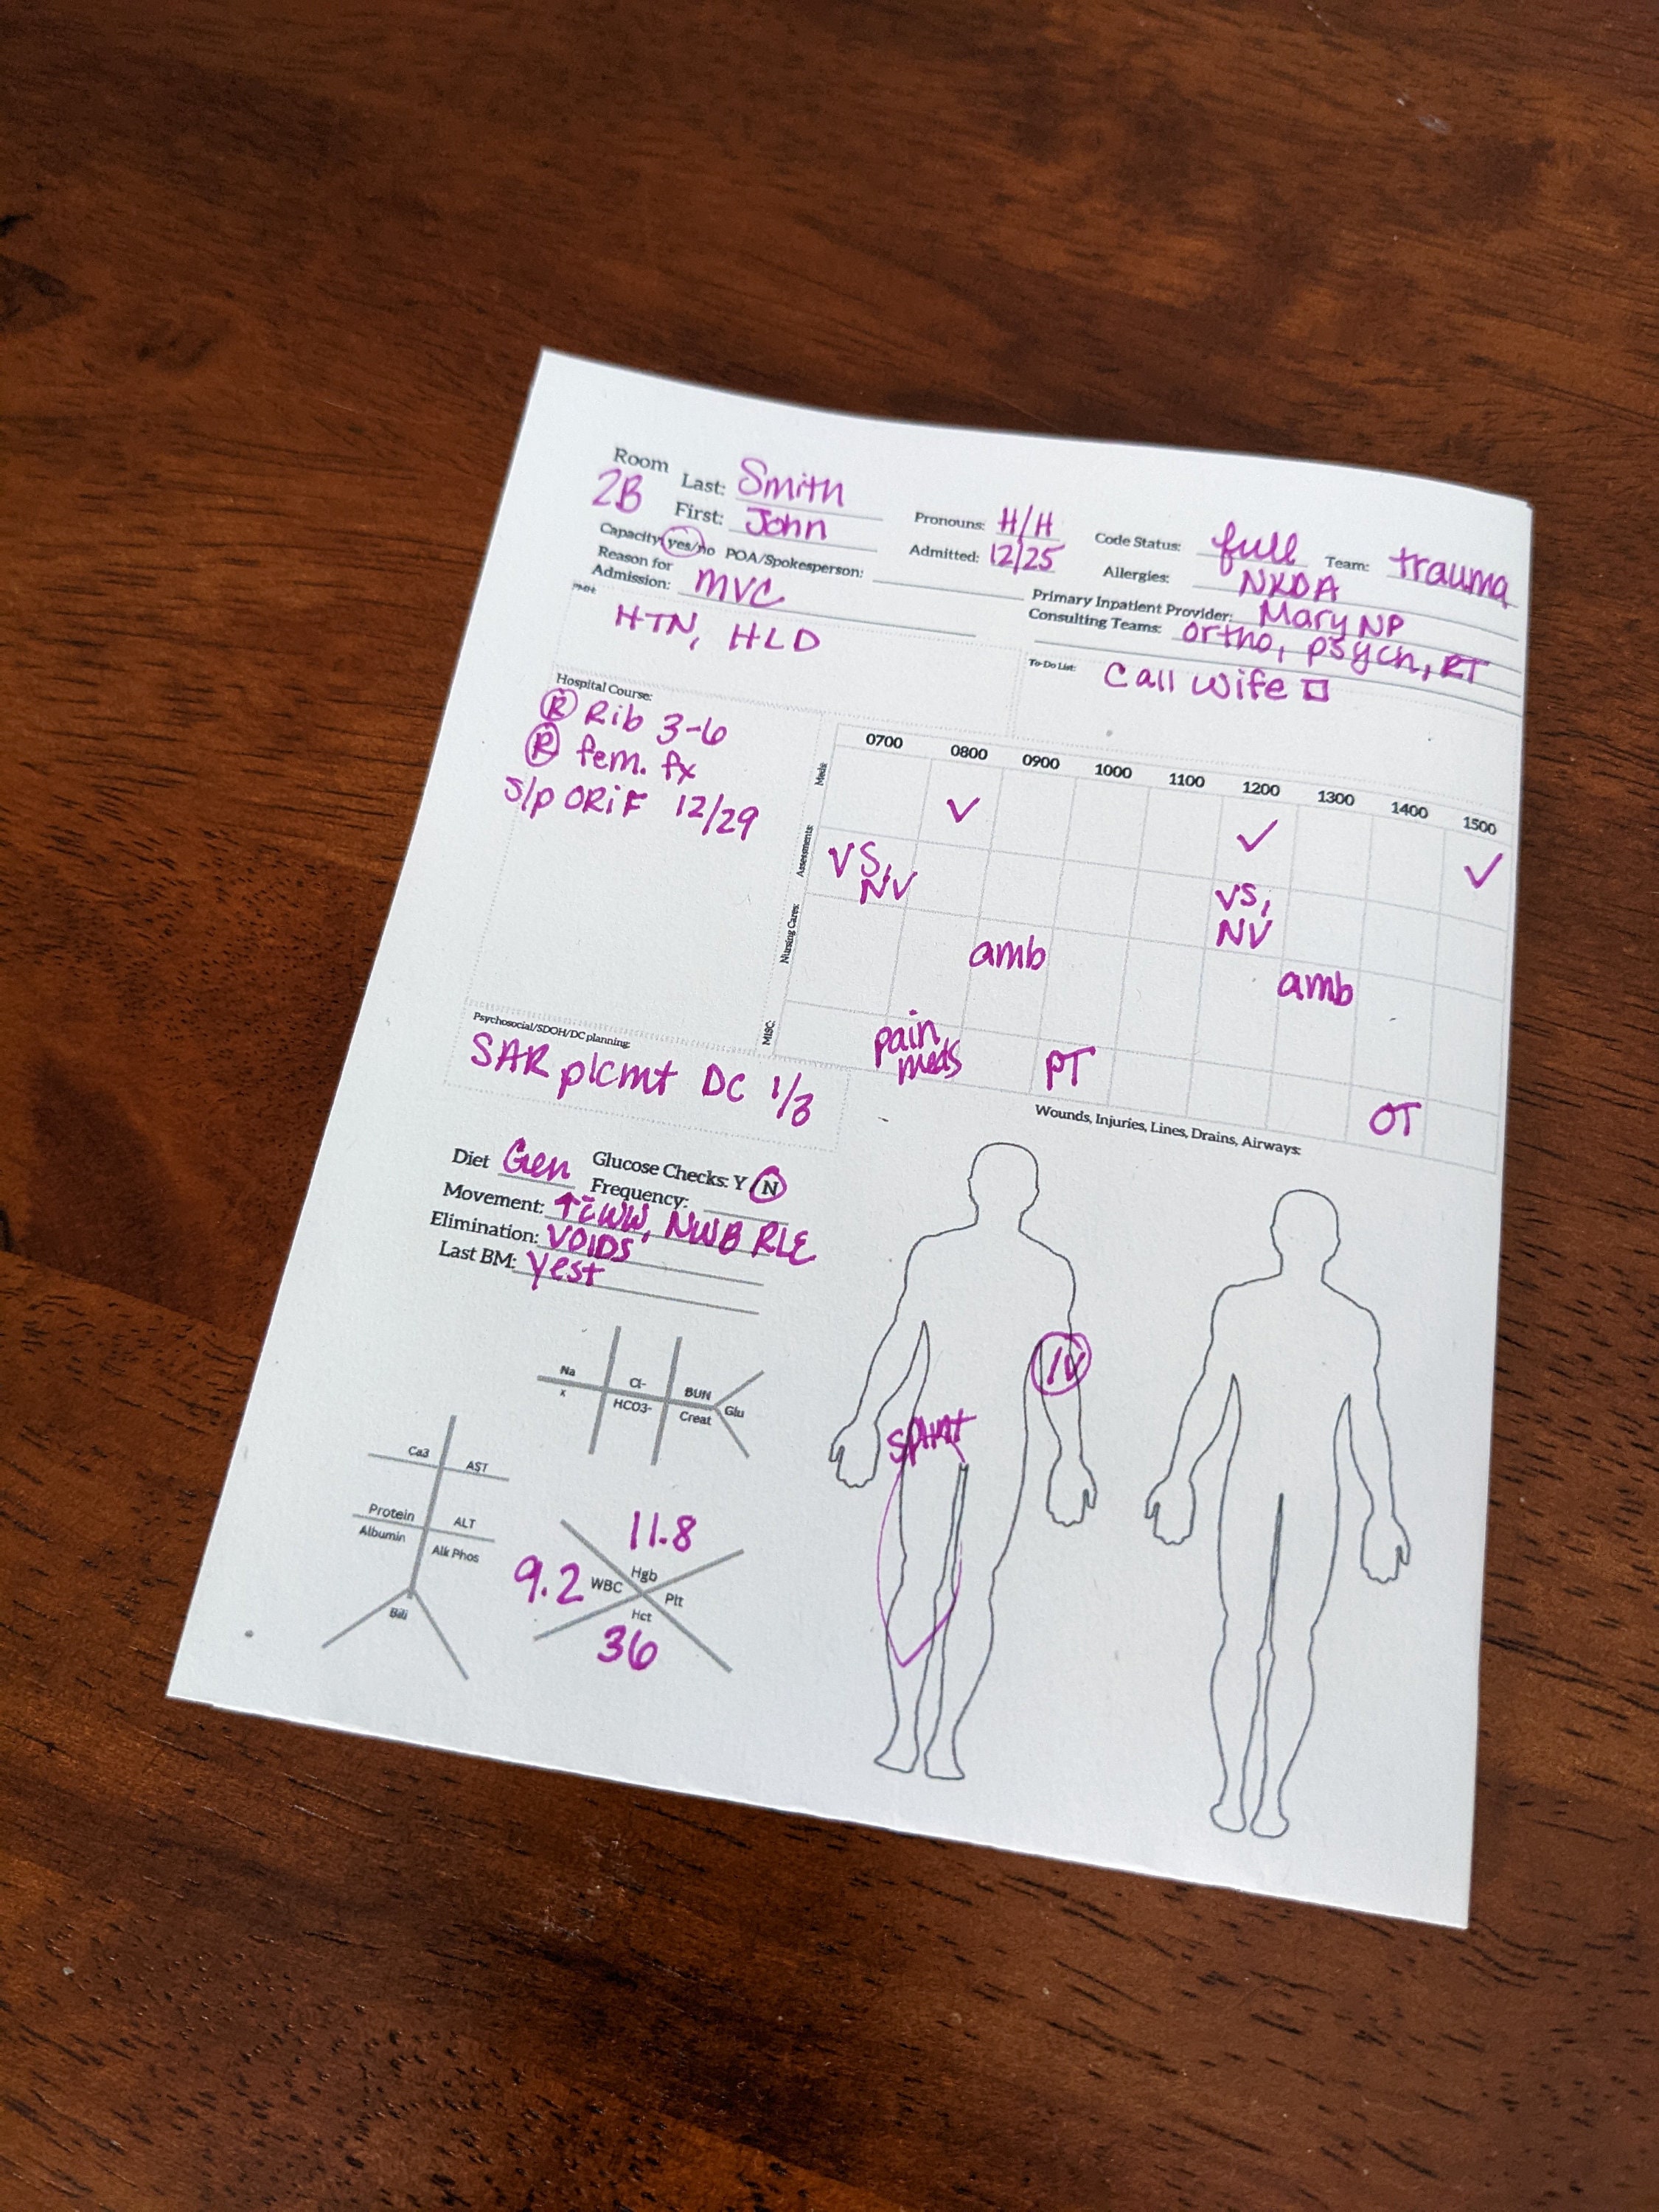 Room
2B
Last: Smith
First: John
Pronouns: H/H
Admitted: 12/25
Code Status: full
Team: trauma
Allergies: NKDA
Capacity: yes/no POA/Spokesperson:
Reason for
Admission: MVC
Primary Inpatient Provider: Mary NP
Consulting Teams: ortho, psych, RT
PMH:
HTN, HLD
To-Do List: Call wife
Hospital Course:
R Rib 3-6
R fem. fx
S/p ORiF 12/29
0700 0800 0900 1000 1100 1200 1300 1400 1500
Meds: ✓ ✓ ✓
Assessments: VS, NV VS, NV
Nursing Cares: amb amb
MISC: pain meds PT OT
Psychosocial/SDOH/DC planning:
SAR plcmt DC 1/3
Diet Gen Glucose Checks: Y N
Frequency:
Movement: ↑ c̄ WW, NWB RLE
Elimination: VOIDS
Last BM: yest
Wounds, Injuries, Lines, Drains, Airways:
IV
splint
Na Cl- BUN
K HCO3- Creat Glu
Ca3 AST
Protein ALT
Albumin Alk Phos
Bili
11.8
Hgb
9.2 WBC Plt
Hct
36